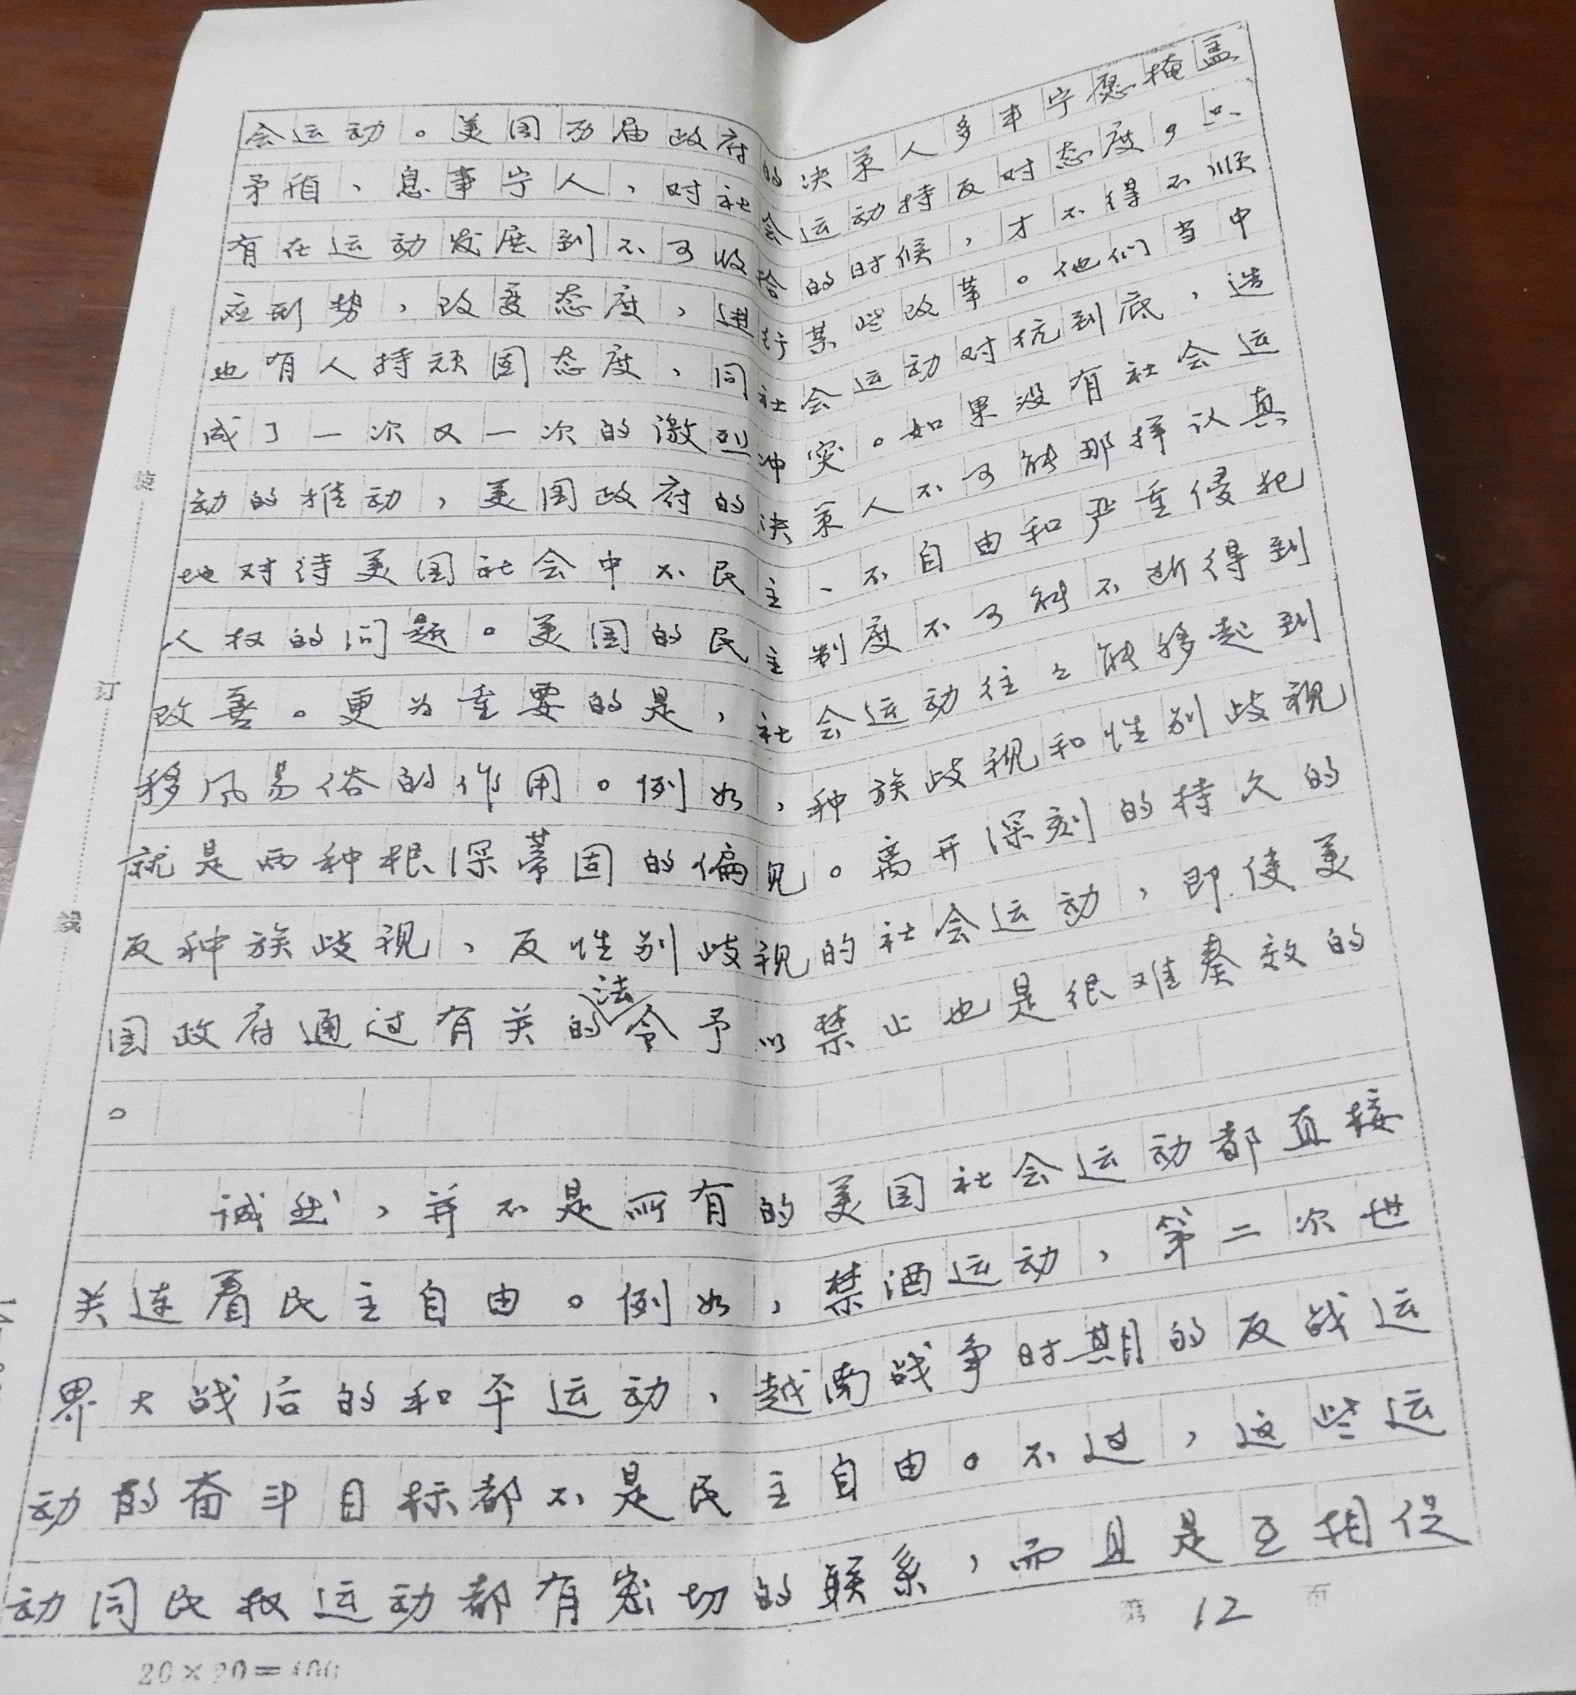 会运动。美国历届政府的决策人多半宁愿掩盖
矛盾、息事宁人，对社会运动持反对态度，只
有在运动发展到不可收拾的时候，才不得不顺
应形势，改变态度，进行某些改革。他们当中
也有人持顽固态度，同社会运动对抗到底，造
成了一次又一次的激烈冲突。如果没有社会运
动的推动，美国政府的决策人不可能那样认真
地对待美国社会中不民主、不自由和严重侵犯
人权的问题。美国的民主制度不可能不断得到
改善。更为重要的是，社会运动往々能够起到
移风易俗的作用。例如，种族歧视和性别歧视
就是两种根深蒂固的偏见。离开深刻的持久的
反种族歧视、反性别歧视的社会运动，即使美
国政府通过有关的法令予以禁止也是很难奏效的
。
诚然，并不是所有的美国社会运动都直接
关连着民主自由。例如，禁酒运动，第二次世
界大战后的和平运动、越南战争时期的反战运
动的奋斗目标都不是民主自由。不过，这些运
动同民权运动都有密切的联系，而且是互相促
第 12 页
20×20=400
装
订
线